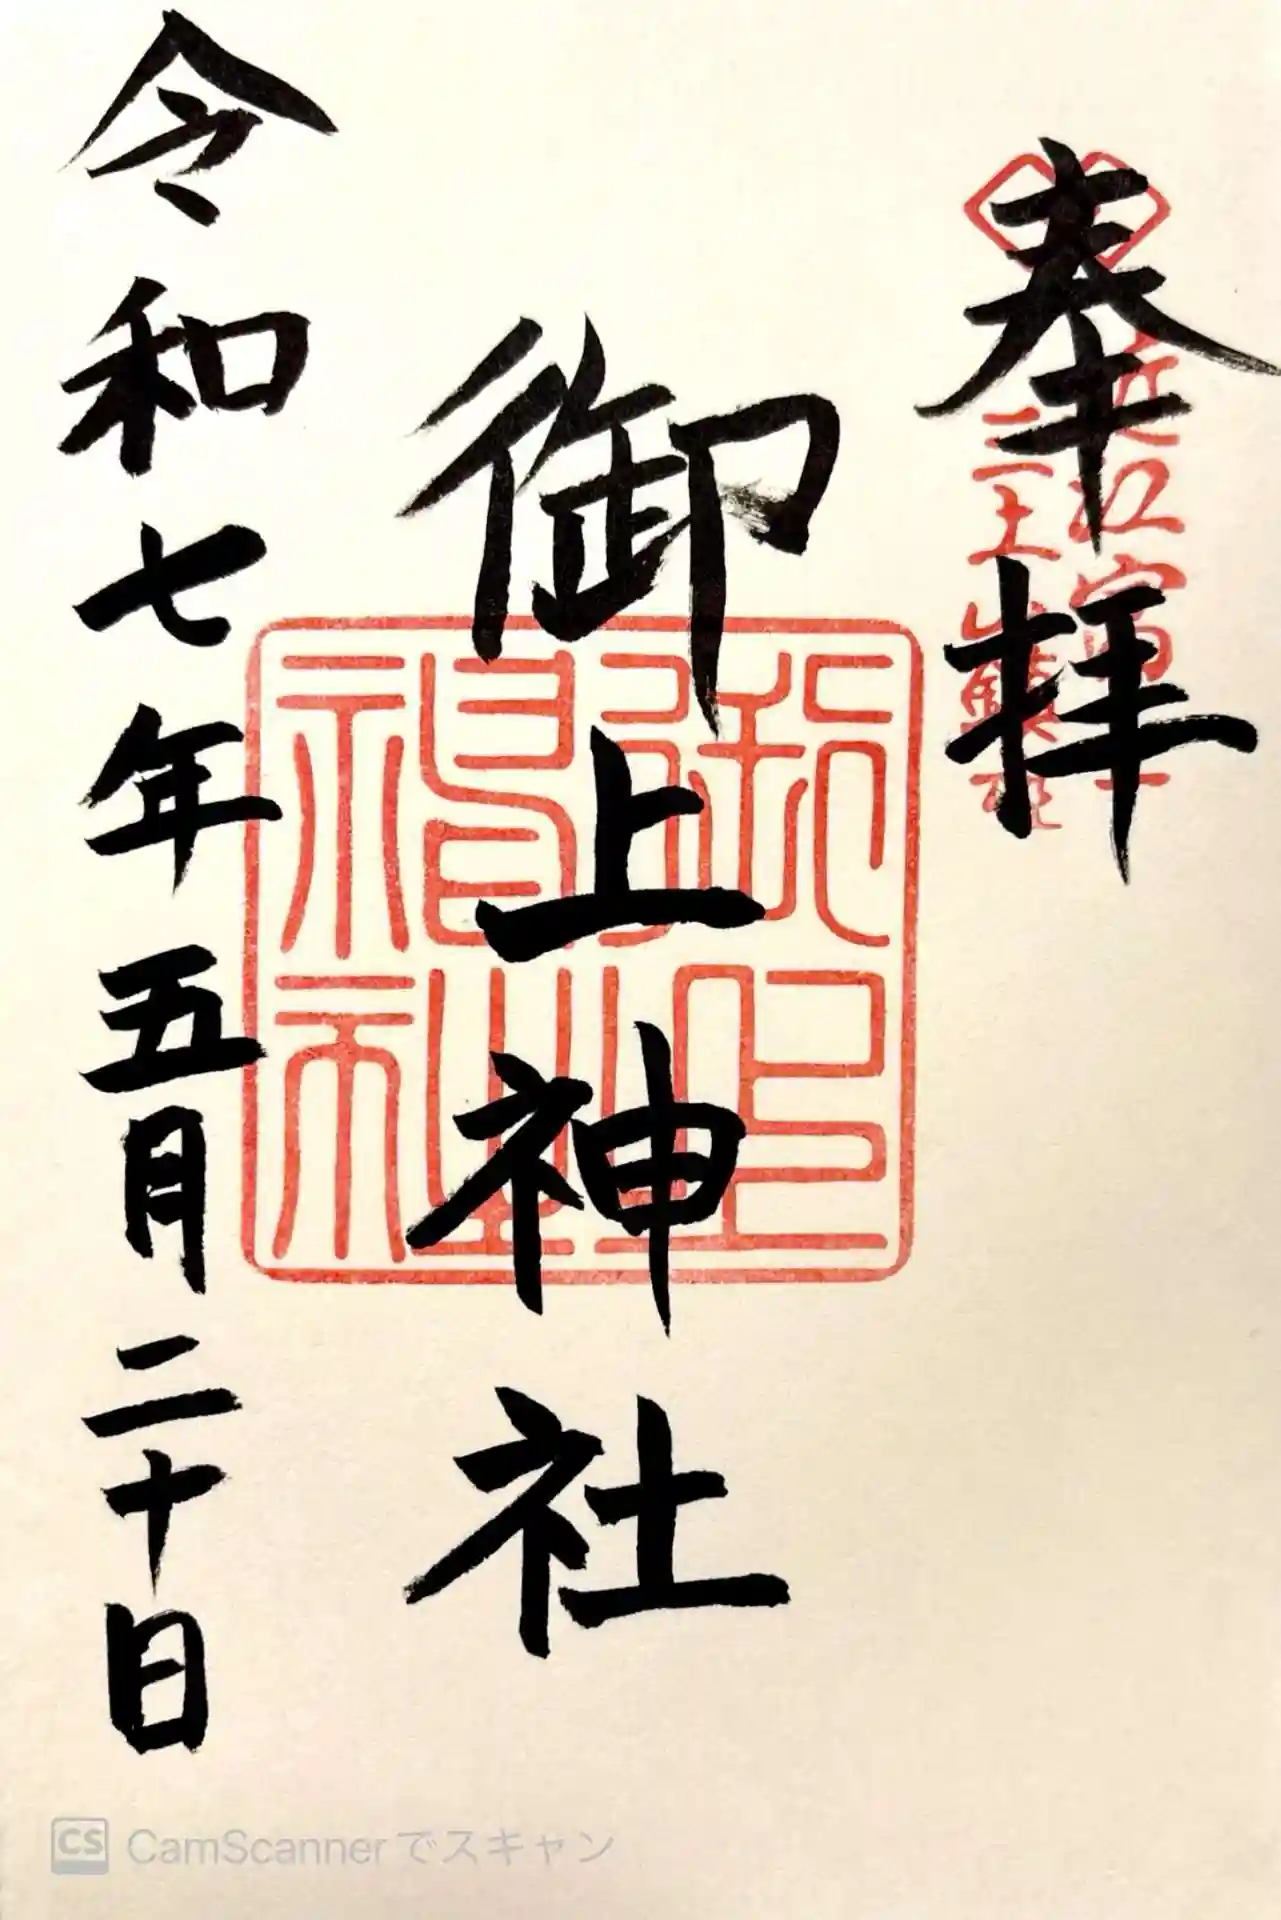 奉拝
近江富士
三上山鎮座
御上神社
御上神社
令和七年五月二十日
CS CamScannerでスキャン